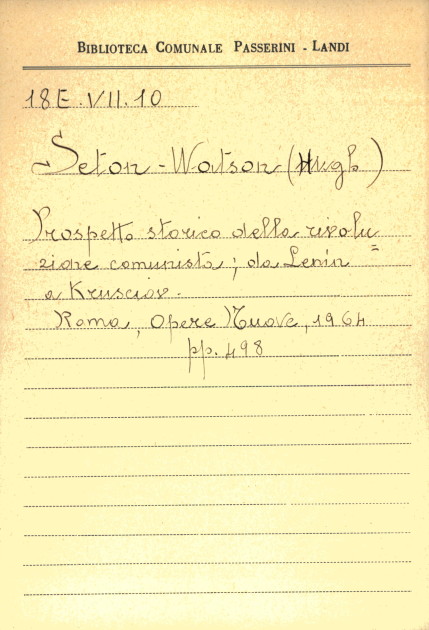 BIBLIOTECA COMUNALE PASSERINI - LANDI
18E.VII.10
Seton-Watson (Hugh)
Prospetto storico della rivolu=
zione comunista; da Lenin
a Krusciov.
Roma, Opere Nuove, 1964
pp. 498